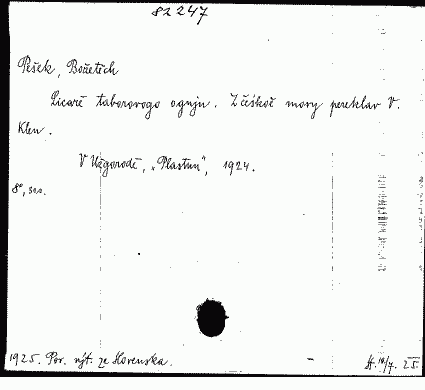 82247
Pešek, Božetěch
Licarě taborovogo ognju. Z češkoě movy pereklav V.
Klen.
V Užgorodě, „Plastun", 1924.
8°,
1925. Pov. výt. ze Slovenska.
25.